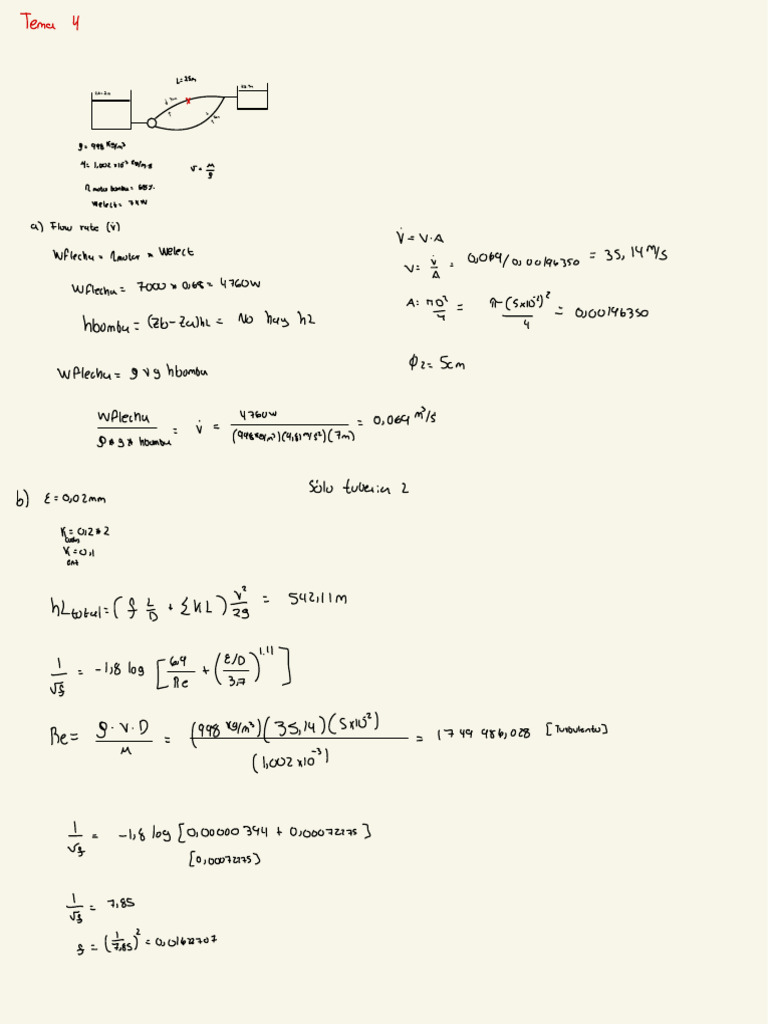 Tema 4
L=25m
ρ= 998 Kg/m³
μ= 1,002 x10⁻³ Kg/m·s
ν = μ/ρ
η motor bomba = 68%
Welect = 7kW
a) Flow rate (v̇)
Wflecha = ηmotor * Welect
Wflecha = 7000 * 0,68 = 4760W
hbomba = (Zb-Za)+hL = No hay hL
Wflecha = ρ v̇ g hbomba
Wflecha / ρ*g* hbomba = v̇ = 4760W / (998 kg/m³)(9,81 m/s²)(7m) = 0,069 m³/s
V̇ = V·A
V= v̇/A = 0,069/0,00196350 = 35,14 m/s
A: πD²/4 = π(5x10⁻²)²/4 = 0,00196350
ϕ2 = 5cm
Sólo tuberia 2
b) ε = 0,02mm
K codo = 0,2*2
K ent = 0,1
hL total = (f L/D + ΣKL) v²/2g = 542,11m
1/√f = -1,8 log [6,9/Re + (ε/D/3,7)^1,11]
Re = ρ·v·D/μ = (998 kg/m³)(35,14)(5x10⁻²)/(1,002 x10⁻³) = 1749 986,028 [Turbulento]
1/√f = -1,8 log [0,00000 394 + 0,00072175]
[0,00072175]
1/√f = 7,85
f = (1/7,85)² = 0,01622707